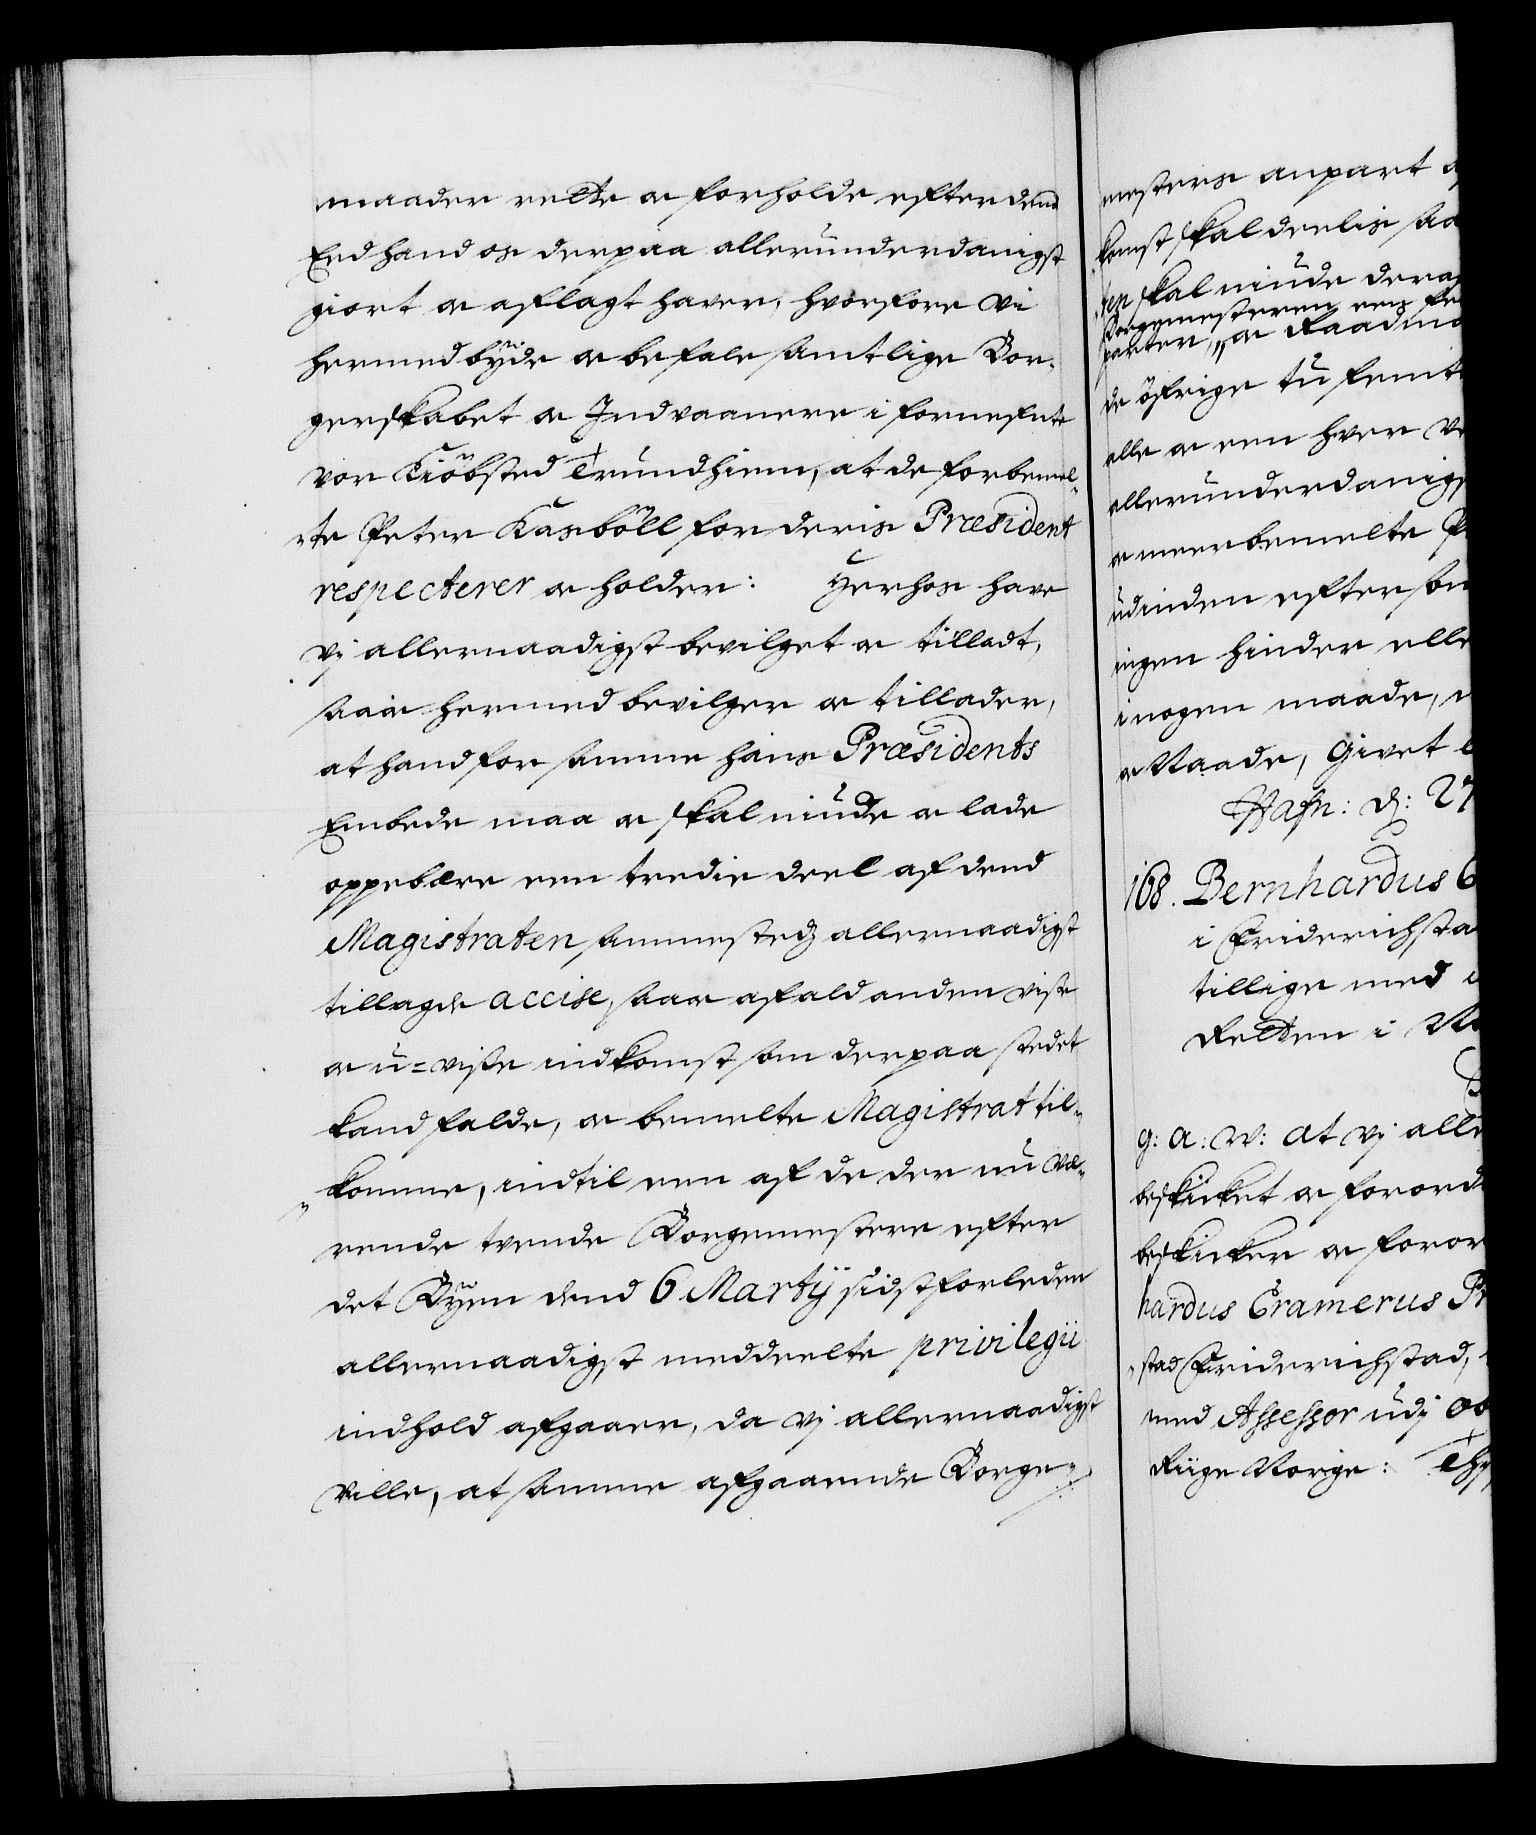 maader rette oc forholde efter dend
Eed hand os derpaa allerunderdanigst
giort oc aflagt hafver, hvorfore Vi
hermed byde oc befale samtlige Bor-
gerskabet oc Indvaanere i fornefnte
vor Kiöbsted Trundhiem, at de forbemel-
-te Peter Kasböll for deris Præsident
respecterer oc holder: Herhos have
Vj allernaadigst bevilget oc tilladt,
saa oc hermed bevilger oc tillader,
at hand for samme hans Præsidents
Embede maa oc skal niude oc lade
oppebære een tredie deel af dend
Magistraten sammestedz allernaadigst
tillagde accise, saa oc af ald anden visse
oc u=visse indkomst som der paa stedet
kand falde, oc bemelte Magistrat til-
-komme, indtil een af de der nu væ-
rende tvende Borgemestere efter
det Byen dend 6 Martij sidstforleden
allernaadigst meddeelte privilegii
indhold afgaaer, da vj allernaadigst
ville, at samme afgaaende Borge-
mesters anpart a
komst skal deelis saa
-ten skal niude dera
Borgemesteren een fe
parter, oc Raadm
de öfrige tu femt
alle oc een hver ve
allerunderdanigs
oc meerbemelte P
udinden eftersom
ingen hinder elle
i nogen maade,
oc Naade, Givet
Hafn: d: 27
168. Bernhardus C
i Friderichsta
tillige med
Retten i No
g: a: w: at vj alle
beskicket oc forord
beskicker oc foror
hardus Cramerus Pr
-stad Friderichstad,
med Assessor udj O
Riige Norge: Th